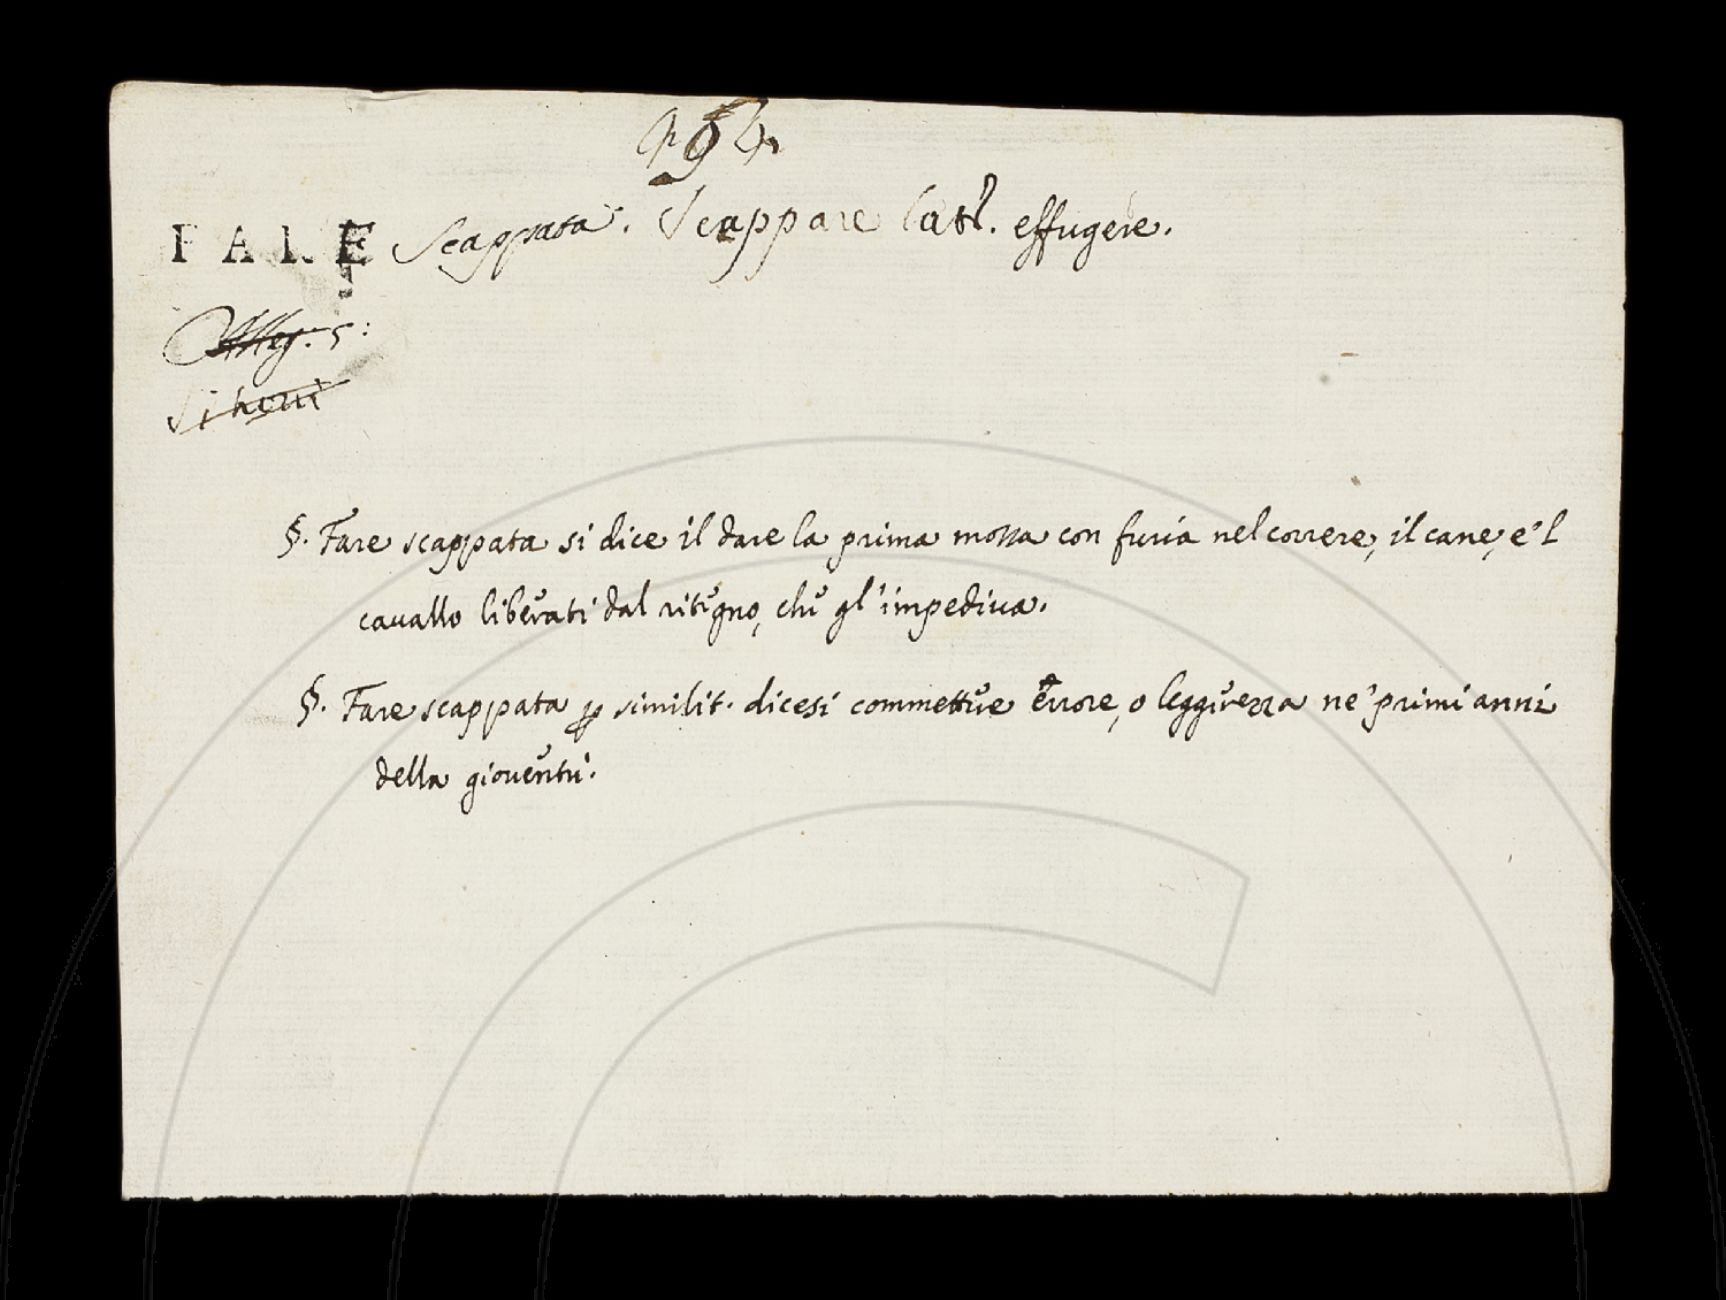 954.
FARE Scappata. Scappare Latt. effugere.
Alleg. 5:
§. Fare scappata si dice il dare la prima mossa con furia nel correre, il cane, e'l
cavallo liberati dal ritegno, che gl'impediva.
§. Fare scappata p similit. dicesi commettere errore, o leggerezza ne' primi anni
della gioventu.